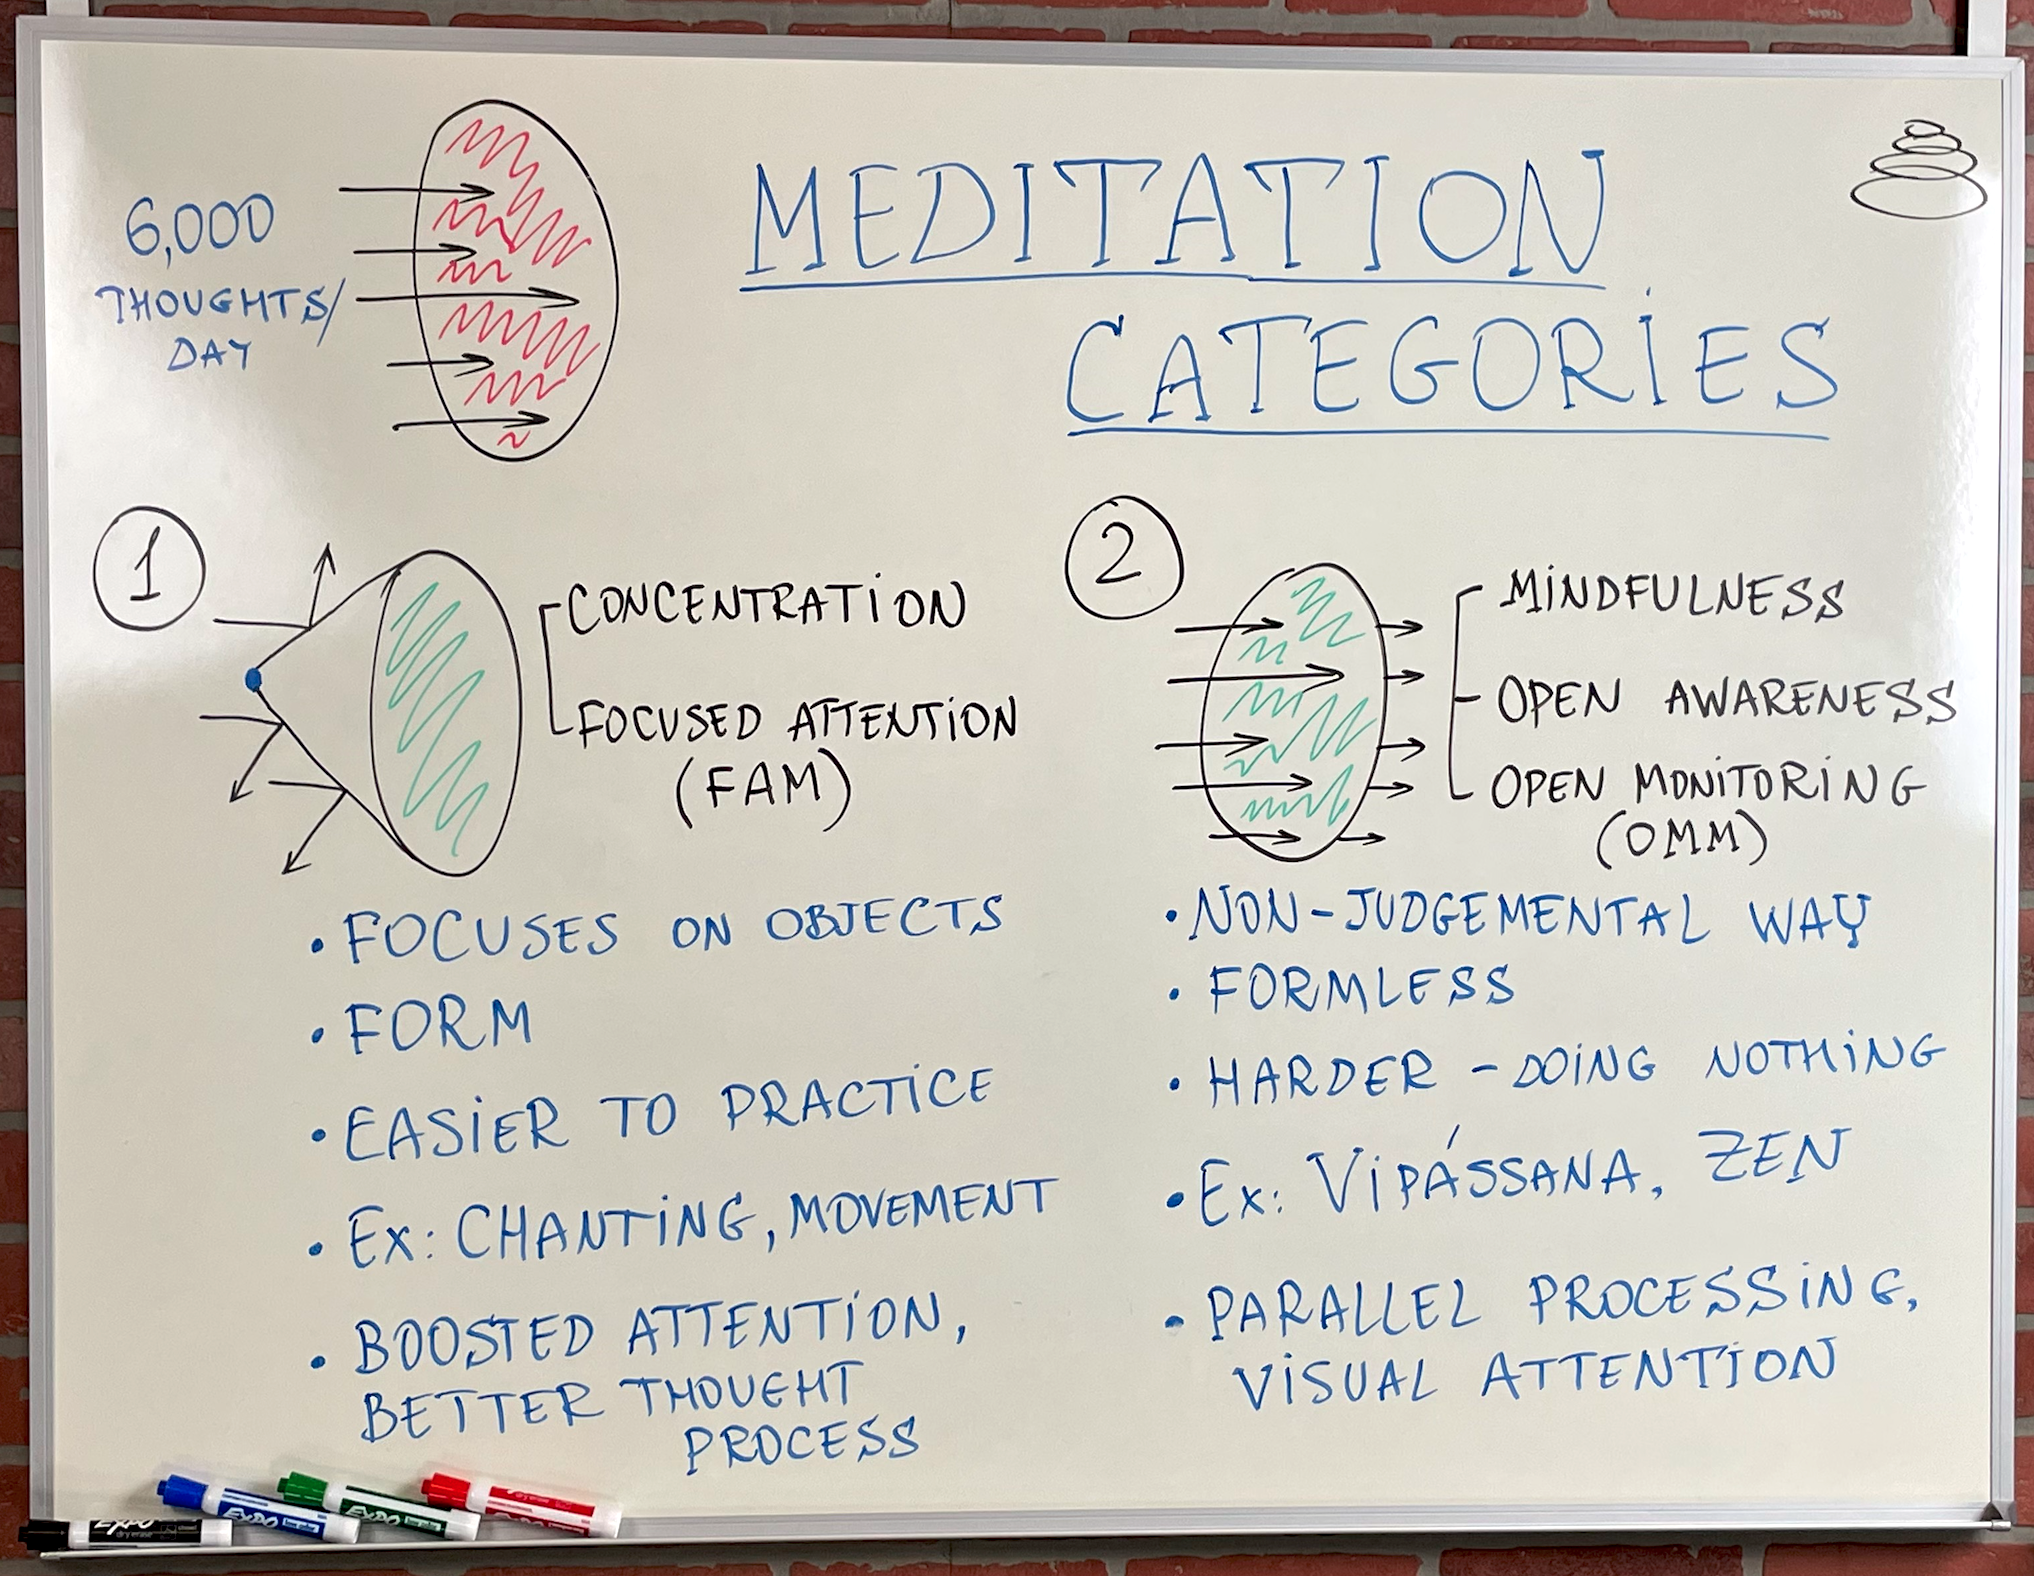 MEDITATION
CATEGORIES
6,000
THOUGHTS/
DAY
1
CONCENTRATION
FOCUSED ATTENTION
(FAM)
• FOCUSES ON OBJECTS
• FORM
• EASIER TO PRACTICE
• EX: CHANTING, MOVEMENT
• BOOSTED ATTENTION,
BETTER THOUGHT
PROCESS
2
MINDFULNESS
OPEN AWARENESS
OPEN MONITORING
(OMM)
• NON-JUDGEMENTAL WAY
• FORMLESS
• HARDER - DOING NOTHING
• EX: VIPÁSSANA, ZEN
• PARALLEL PROCESSING,
VISUAL ATTENTION
EXPO
dry erase
EXPO
EXPO
dry erase